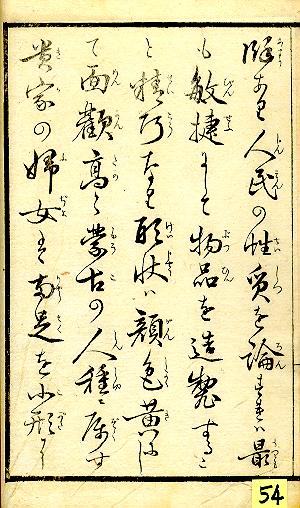 あり人民の性質を論ずれハ最
も敏捷にして物品を造製するこ
と精巧なり形状ハ顔色黄にし
て面顴高く蒙古の人種に属す
貴家の婦女は両足を小形に
54